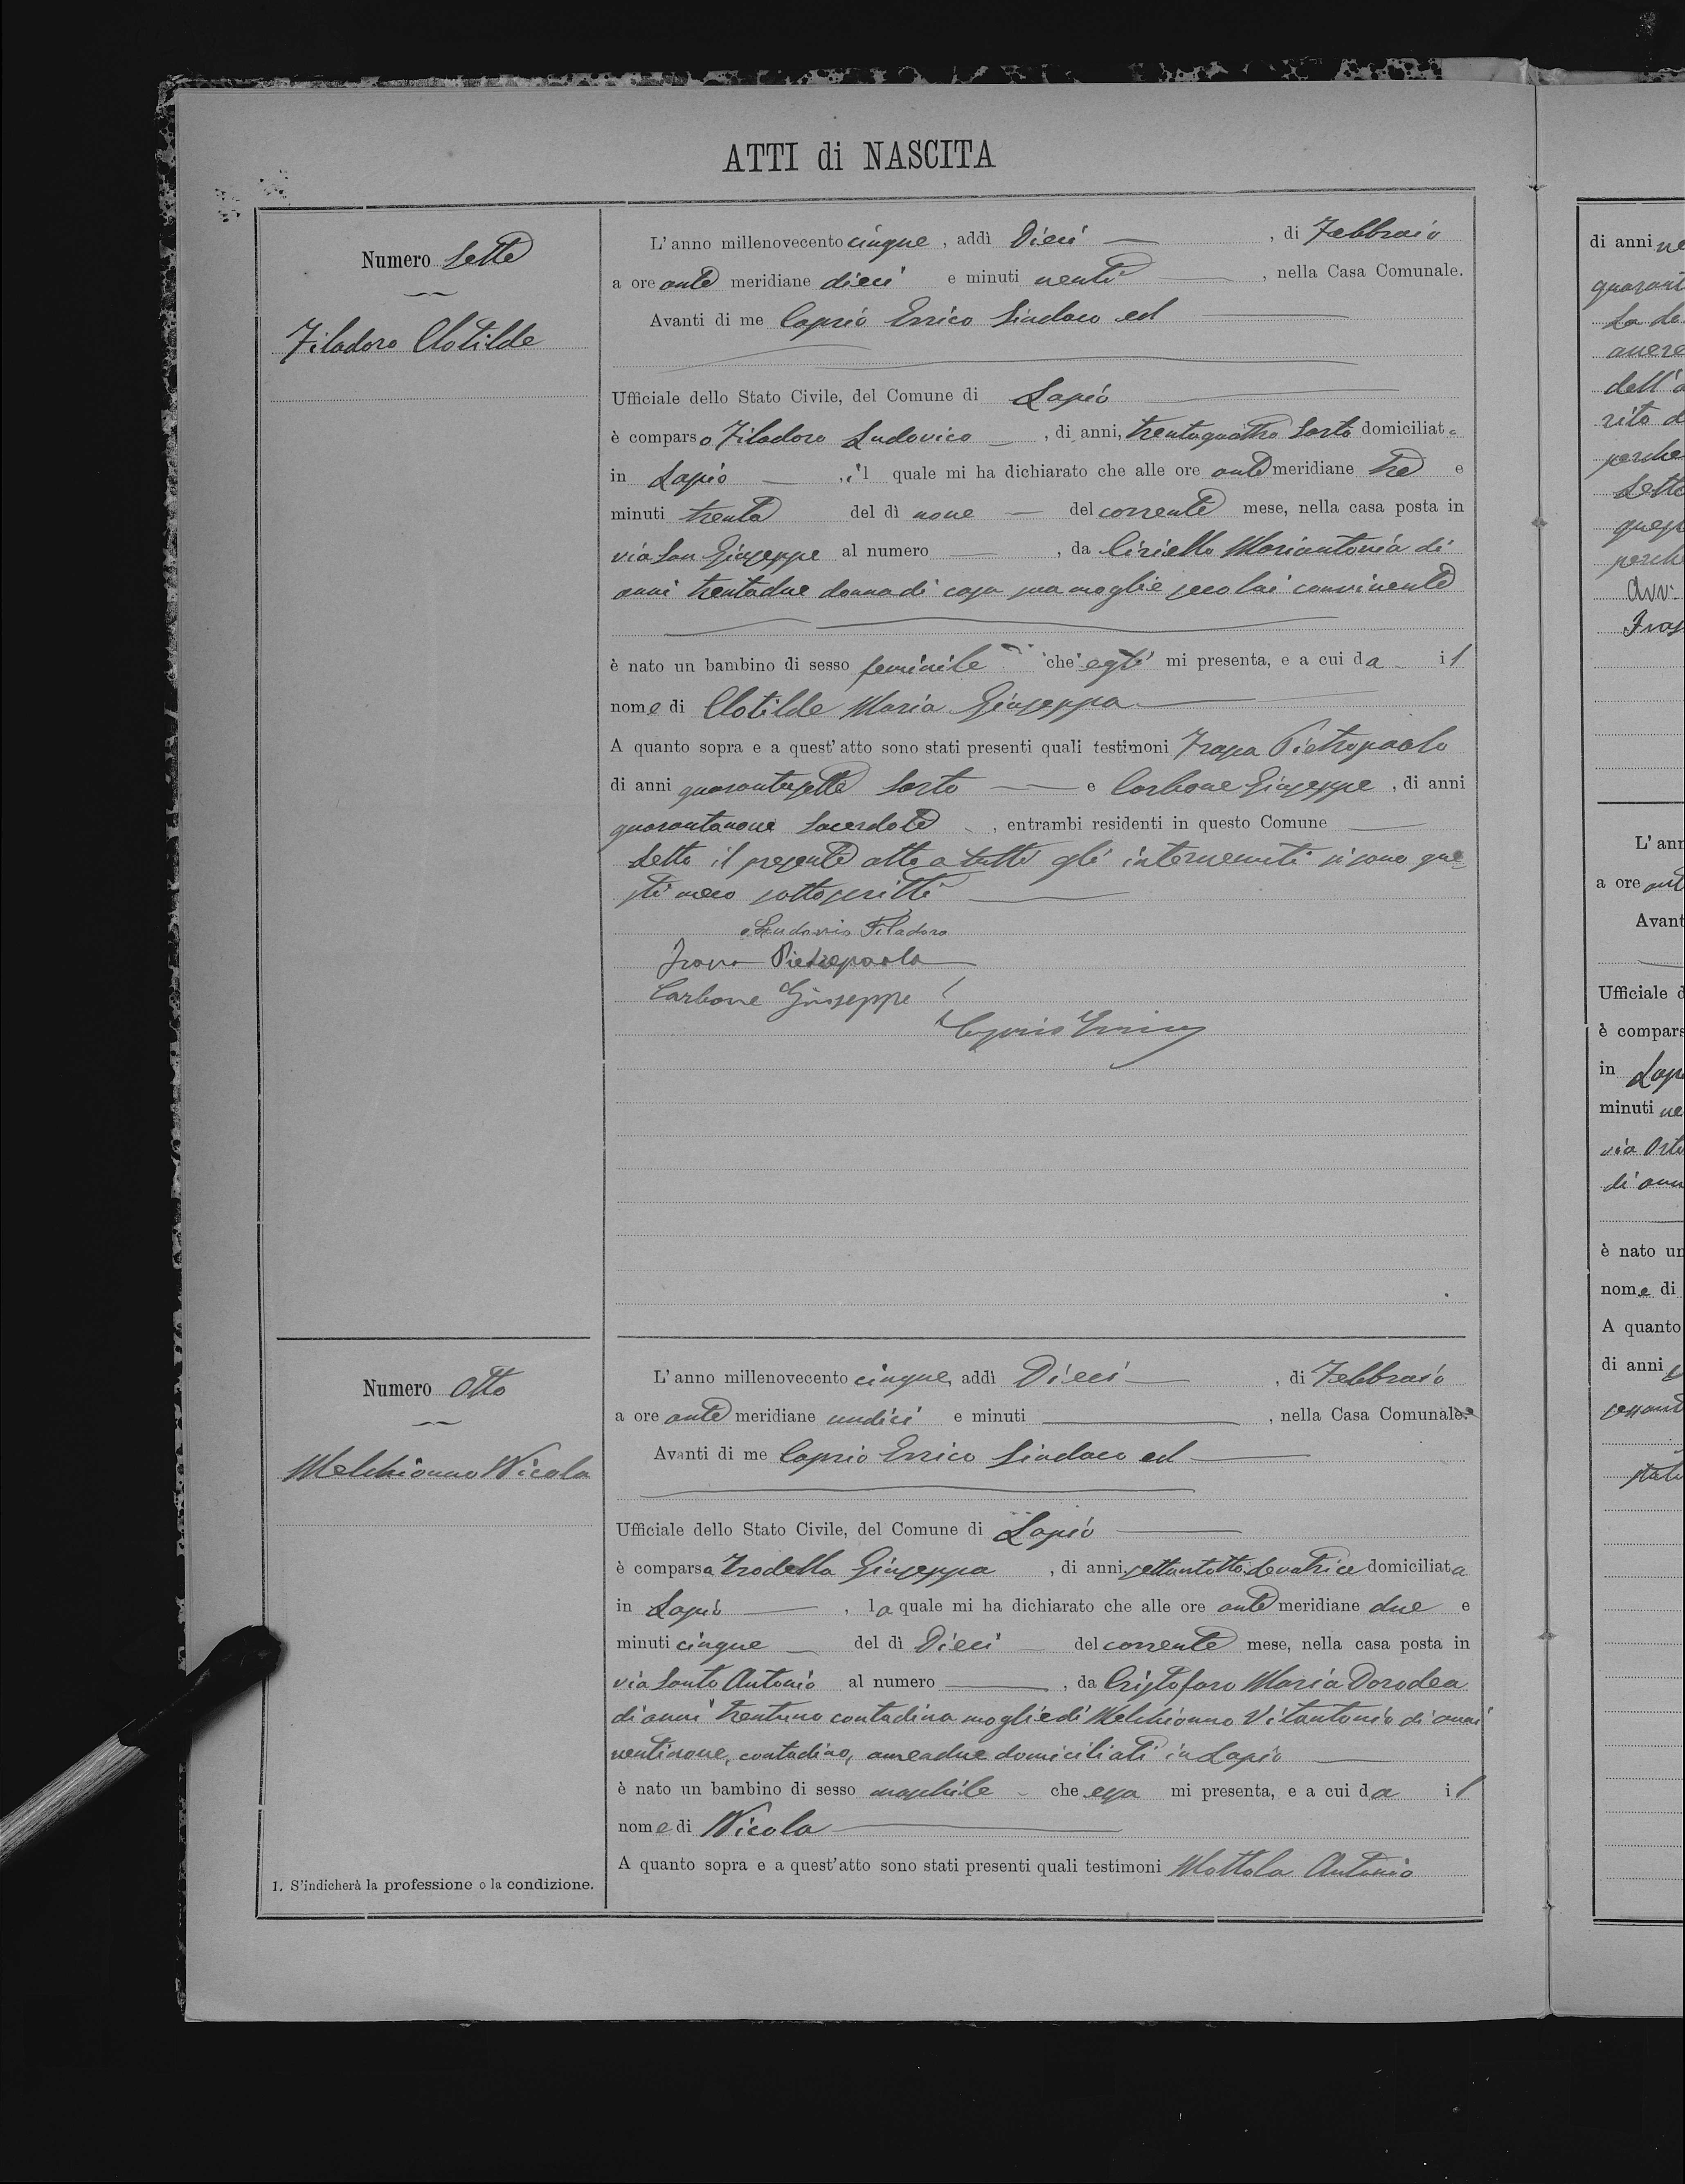 ATTI di NASCITA
Numero Sette
Filadoro Clotilde
L'anno millenovecento cinque, addì Dieci, di Febbraio
a ore ante meridiane dieci e minuti venti, nella Casa Comunale.
Avanti di me Caprio Errico Sindaco ed
Ufficiale dello Stato Civile, del Comune di Lapio
è comparso Filadoro Ludovico, di anni, trentaquattro Sarto domiciliato
in Lapio, il quale mi ha dichiarato che alle ore ante meridiane tre e
minuti trenta del dì nove del corrente mese, nella casa posta in
via San Giuseppe al numero, da Ciriello Mariantonia di
anni trentadue donna di casa sua moglie seco lui convivente
è nato un bambino di sesso feminile che egli mi presenta, e a cui da il
nome di Clotilde Maria Giuseppa
A quanto sopra e a quest'atto sono stati presenti quali testimoni Trapa Pietropaolo
di anni quarantasette Sarto e Carbone Giuseppe, di anni
quarantanove Sacerdote, entrambi residenti in questo Comune
Letto il presente atto a tutti gli intervenuti si sono que
sti meco sottoscritti
Ludovico Filadoro
Pietropaolo
Carbone Giuseppe
Caprio Errico
Numero Otto
Melchionno Nicola
L'anno millenovecento cinque, addì Dieci, di Febbraio
a ore ante meridiane undici e minuti, nella Casa Comunale.
Avanti di me Caprio Errico Sindaco ed
Ufficiale dello Stato Civile, del Comune di Lapio
è comparsa Trodella Giuseppa, di anni, settantotto levatrice domiciliata
in Lapio, la quale mi ha dichiarato che alle ore ante meridiane due e
minuti cinque del dì Dieci del corrente mese, nella casa posta in
via Santo Antonio al numero, da Cristofaro Maria Dorodea
di anni trentuno contadina moglie di Melchionno Vitantonio di anni
ventinove, contadino, amendue domiciliati in Lapio
è nato un bambino di sesso maschile che essa mi presenta, e a cui da il
nome di Nicola
A quanto sopra e a quest'atto sono stati presenti quali testimoni Mottola Antonio
1. S'indicherà la professione o la condizione.
di anni
dell'
perche
Sette
perche
Avv.
L'ann
a ore
Avant
Ufficiale d
è compars
in Lap
minuti
via
di
è nato un
nome di
A quanto
di anni